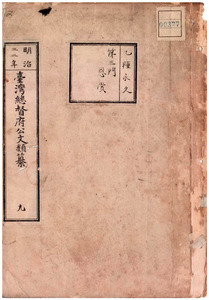 00377
乙種永久
第三門
恩賞
明治
年
臺灣總督府公文類纂
九